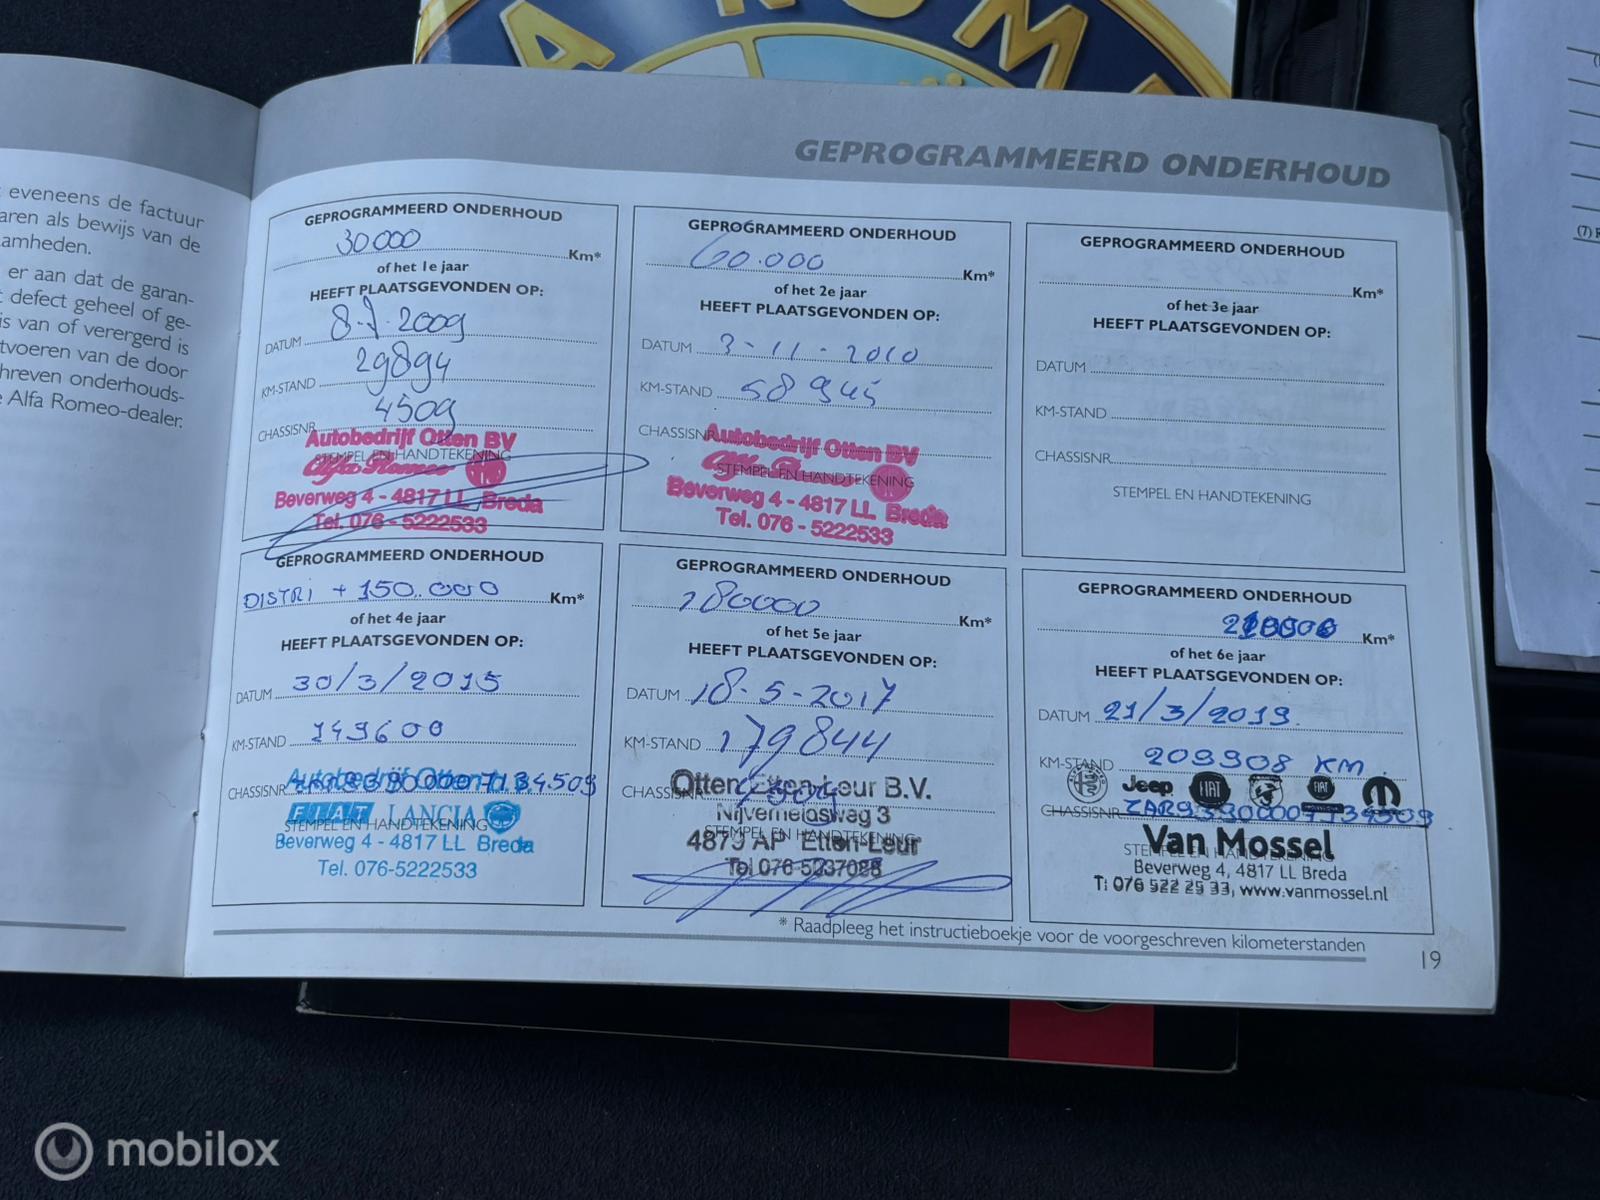 A ROM
eveneens de factuur
aren als bewijs van de
amheden.
er aan dat de garan-
defect geheel of ge-
is van of verergerd is
tvoeren van de door
hreven onderhouds-
Alfa Romeo-dealer.
GEPROGRAMMEERD ONDERHOUD
GEPROGRAMMEERD ONDERHOUD
30.000 Km*
of het 1e jaar
HEEFT PLAATSGEVONDEN OP:
DATUM 8.7.2009
KM-STAND 29894
CHASSISNR. 4509
Autobedrijf Otten BV
STEMPEL EN HANDTEKENING
Alfa Romeo
Beverweg 4 - 4817 LL Breda
Tel. 076 - 5222533
GEPROGRAMMEERD ONDERHOUD
60.000 Km*
of het 2e jaar
HEEFT PLAATSGEVONDEN OP:
DATUM 3-11-2010
KM-STAND 58945
CHASSISNR.
Autobedrijf Otten BV
STEMPEL EN HANDTEKENING
Beverweg 4 - 4817 LL Breda
Tel. 076 - 5222533
GEPROGRAMMEERD ONDERHOUD
Km*
of het 3e jaar
HEEFT PLAATSGEVONDEN OP:
DATUM
KM-STAND
CHASSISNR.
STEMPEL EN HANDTEKENING
GEPROGRAMMEERD ONDERHOUD
DISTRI + 150.000 Km*
of het 4e jaar
HEEFT PLAATSGEVONDEN OP:
DATUM 30/3/2015
KM-STAND 149600
CHASSISNR.
Autobedrijf Otten
FIAT LANCIA
STEMPEL EN HANDTEKENING
Beverweg 4 - 4817 LL Breda
Tel. 076-5222533
GEPROGRAMMEERD ONDERHOUD
180000 Km*
of het 5e jaar
HEEFT PLAATSGEVONDEN OP:
DATUM 18-5-2017
KM-STAND 179844
CHASSISNR. 4509
Otten Etten-Leur B.V.
Nijverheidsweg 3
STEMPEL EN HANDTEKENING
4879 AP Etten-Leur
Tel 076-5037088
GEPROGRAMMEERD ONDERHOUD
210000 Km*
of het 6e jaar
HEEFT PLAATSGEVONDEN OP:
DATUM 21/3/2019.
KM-STAND 209908 KM.
Jeep FIAT FIAT
CHASSISNR. ZAR93900007134509
Van Mossel
STEMPEL EN HANDTEKENING
Beverweg 4, 4817 LL Breda
T: 076 522 25 33, www.vanmossel.nl
* Raadpleeg het instructieboekje voor de voorgeschreven kilometerstanden
19
(7)
mobilox